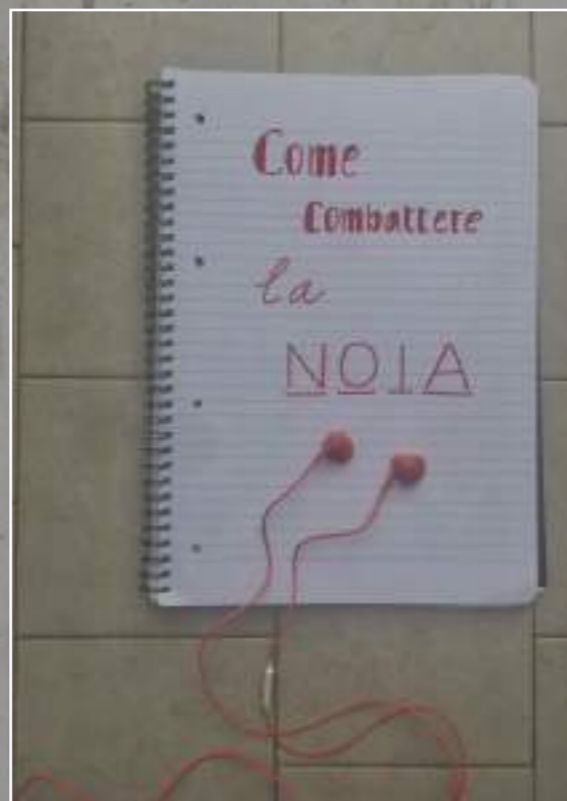 Come
Combattere
la
NOIA